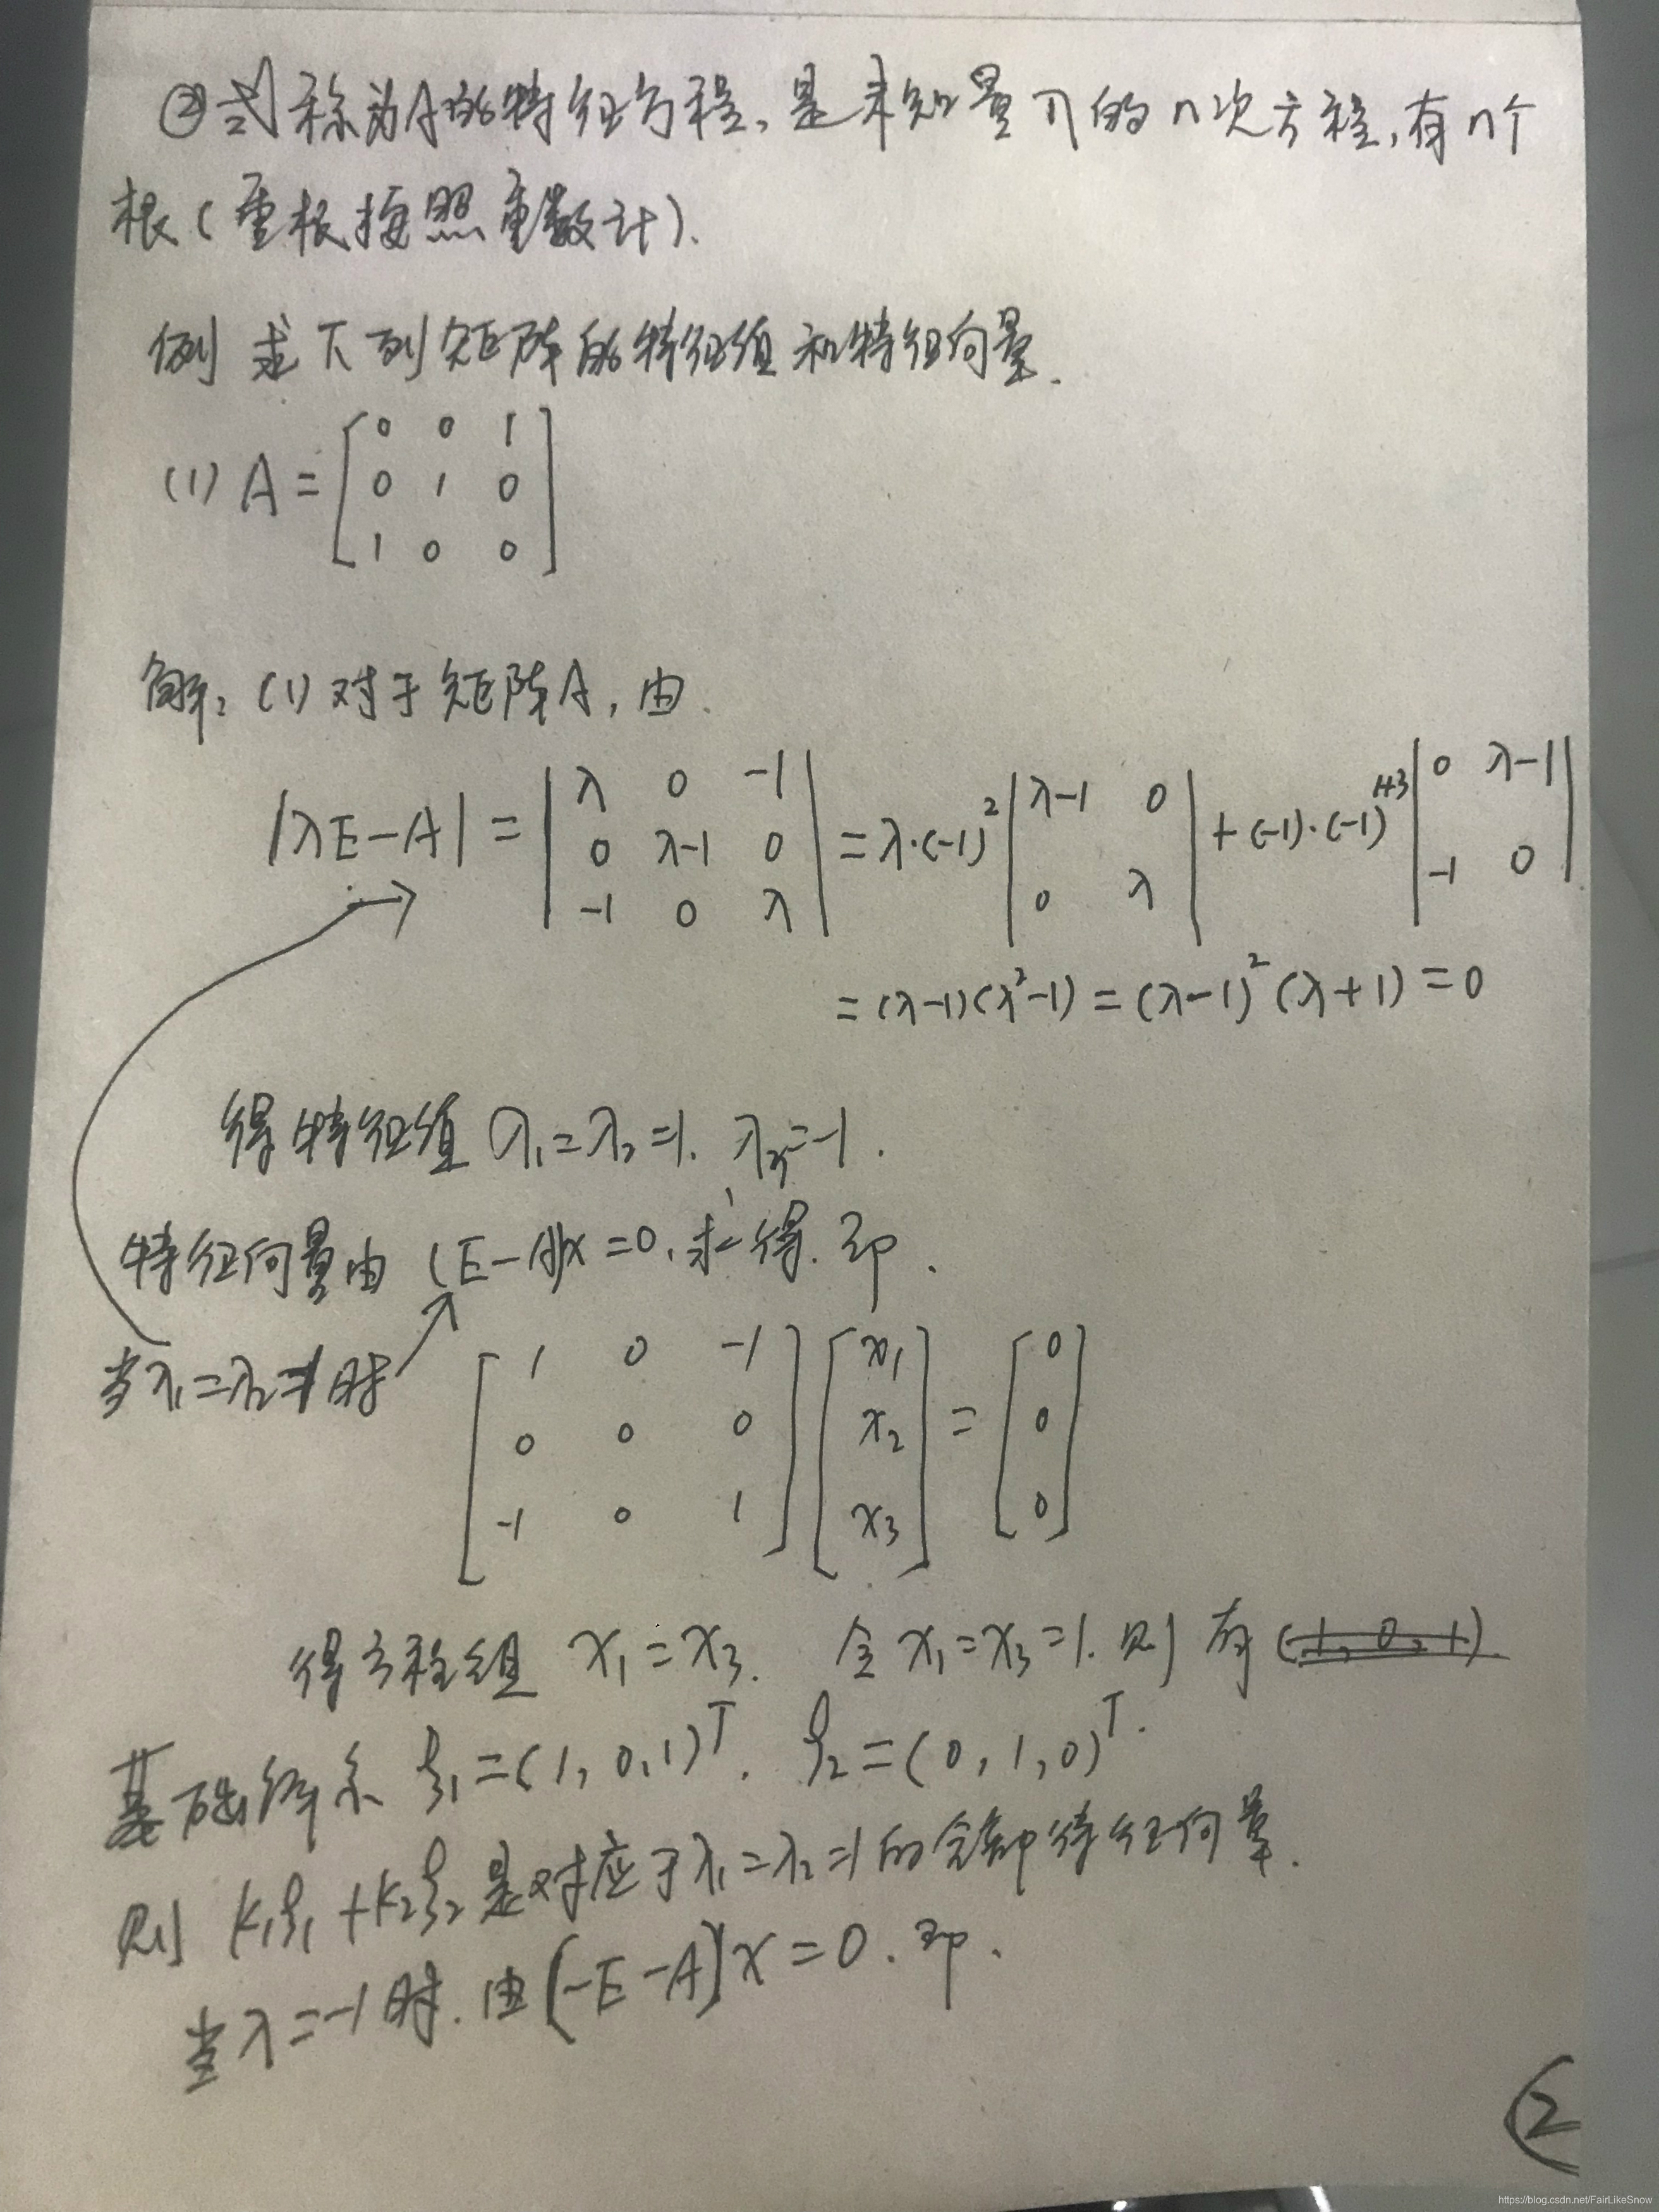 ②式称为A的特征方程,是未知量λ的n次方程,有n个
根(重根按照重数计).
例 求下列矩阵的特征值和特征向量.
(1) A = [ 0 0 1
0 1 0
1 0 0 ]
解: (1) 对于矩阵A, 由.
|λE-A| = | λ 0 -1 | = λ·(-1)² | λ-1 0 | + (-1)·(-1)^{1+3} | 0 λ-1 |
| 0 λ-1 0 |
| -1 0 λ | | 0 λ | | -1 0 |
= (λ-1)(λ²-1) = (λ-1)²(λ+1) = 0
得特征值 λ₁=λ₂=1. λ₃=-1.
特征向量由 (E-A)x=0. 求得. 即.
当λ₁=λ₂=1时 [ 1 0 -1 ] [ x₁ ] = [ 0 ]
[ 0 0 0 ] [ x₂ ] [ 0 ]
[ -1 0 1 ] [ x₃ ] [ 0 ]
得方程组 x₁=x₃. 令x₁=x₃=1. 则有 (1, 0, 1)
基础解系 ξ₁=(1,0,1)ᵀ. ξ₂=(0,1,0)ᵀ.
则 k₁ξ₁+k₂ξ₂是对应于λ₁=λ₂=1的全部特征向量.
当λ=-1时. 由(-E-A)x=0. 即.
②
https://blog.csdn.net/FairLikeSnow